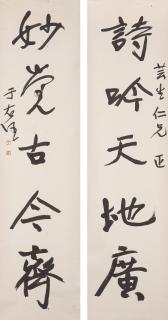 詩吟天地廣
芸生仁兄正
妙覺古今齊
于右任